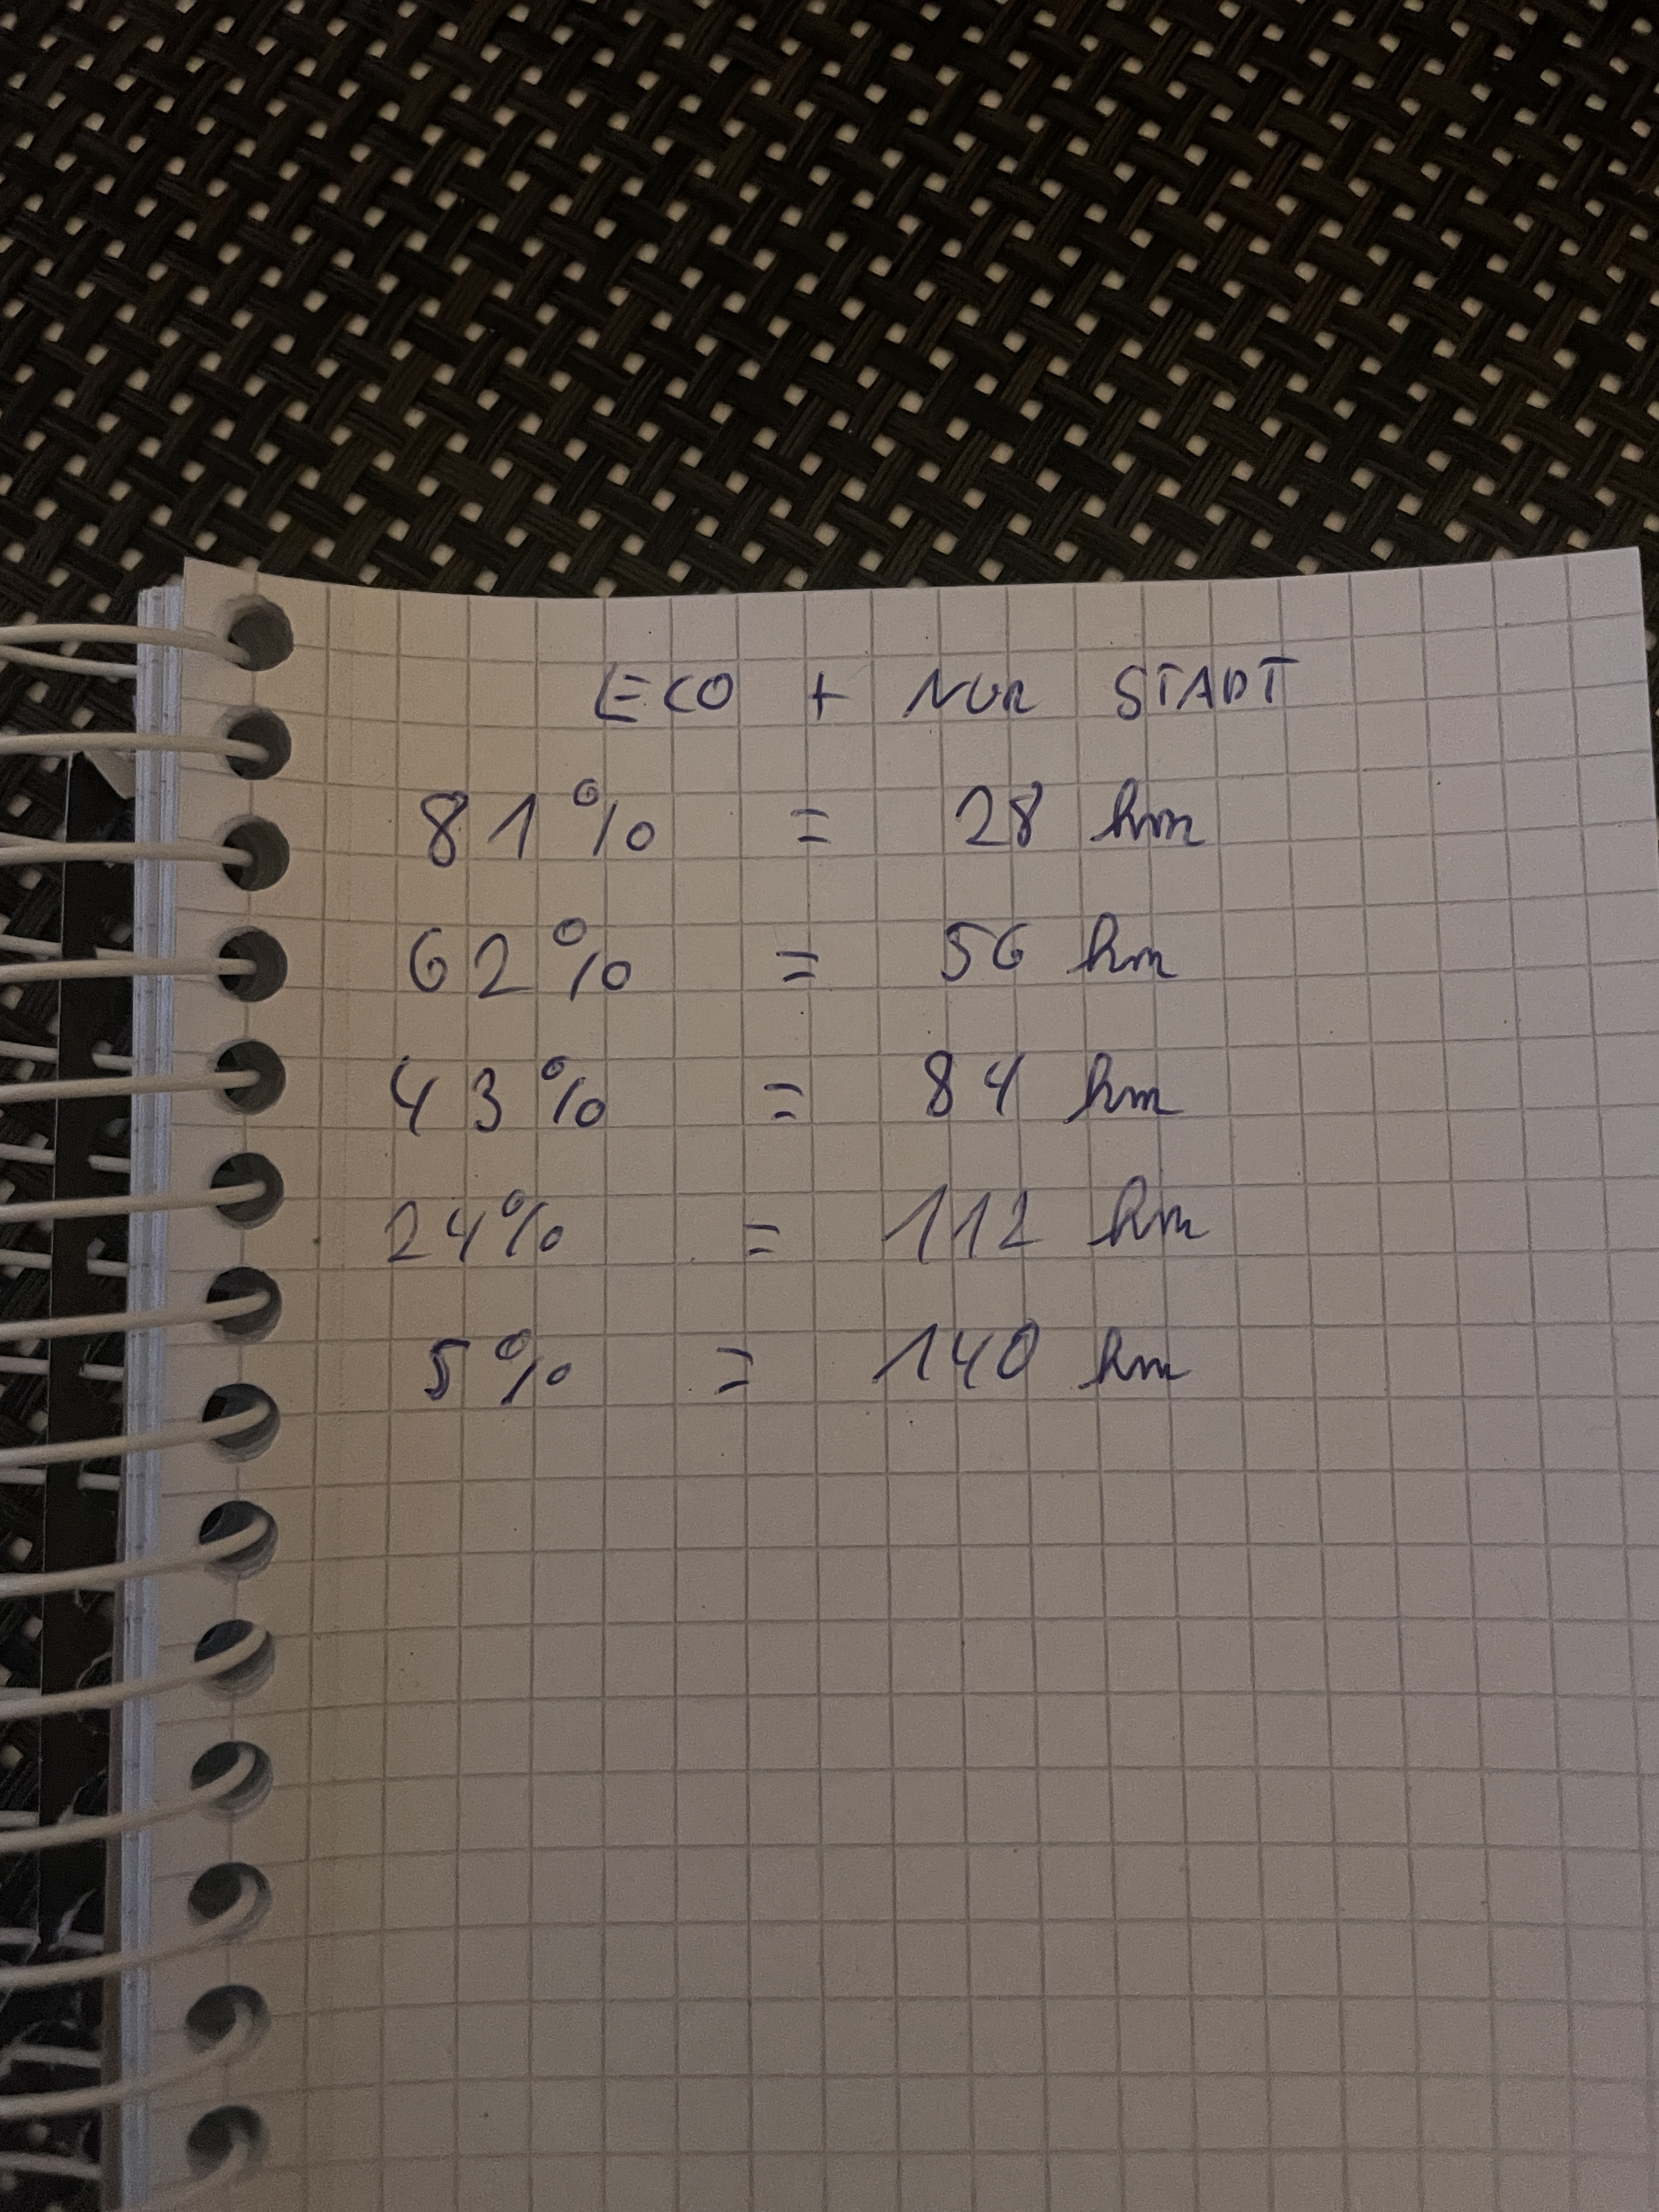 ECO + NUR STADT
81% = 28 km
62% = 56 km
43% = 84 km
24% = 112 km
5% = 140 km